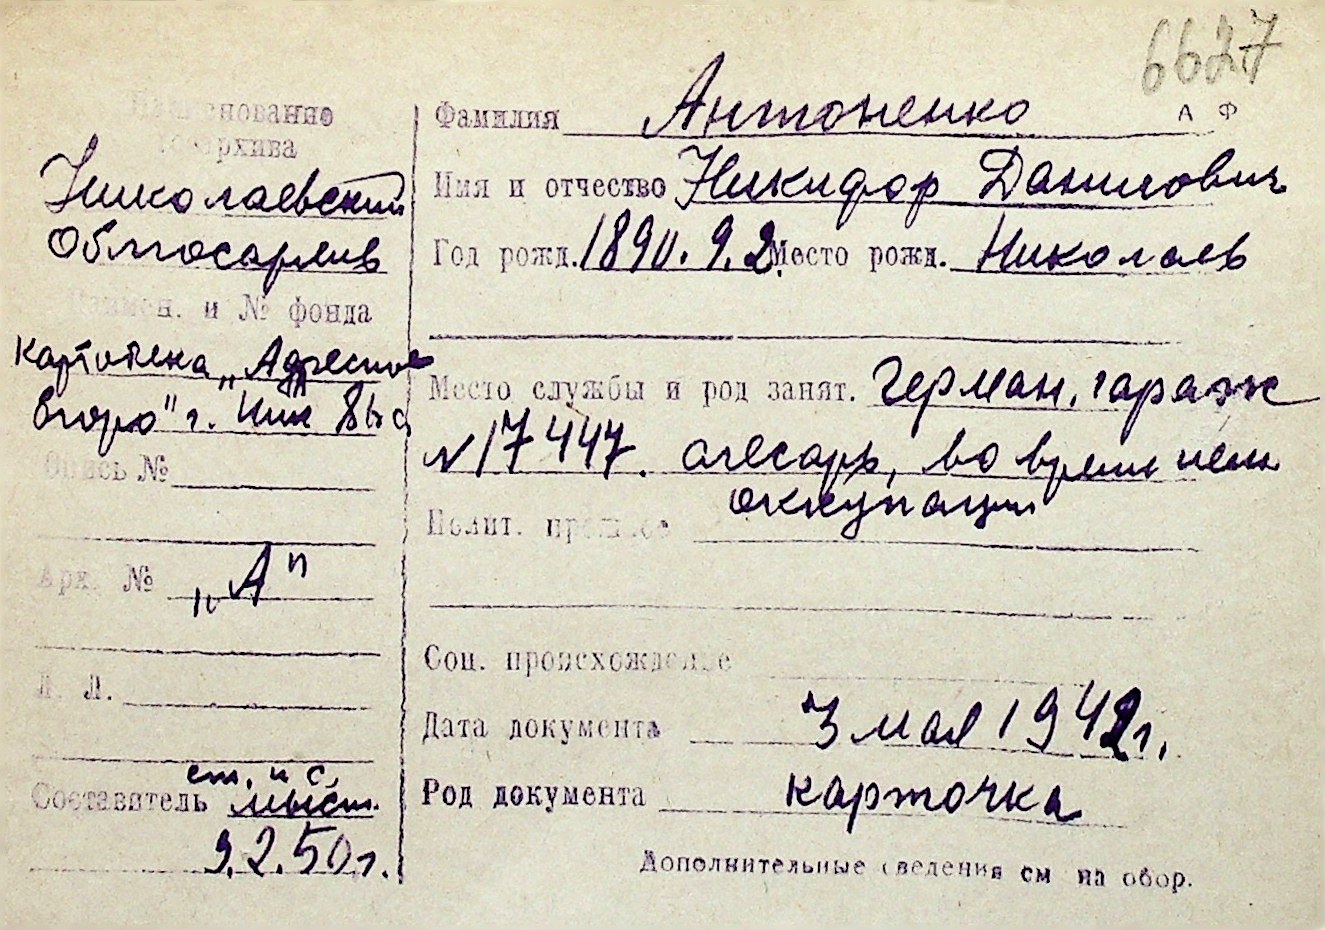 6627
А Ф
Наименование
госархива
Николаевский
Облгосархив
Наимен. и № фонда
картотека „Адресное
бюро" г. Ник
Опись №
Арх. № „А"
Л. Л.
Составитель ст. н с.
9.2.50г.
Фамилия Антоненко
Имя и отчество Никифор Данилович
Год рожд. 1890.9.2 Место рожд. Николаев
Место службы и род занят. Герман. гараж
N 17447. слесарь, во время нем
оккупации
Полит. прошлое
Соц. происхождение
Дата документа 3 мая 1942г.
Род документа карточка
Дополнительные сведения см на обор.